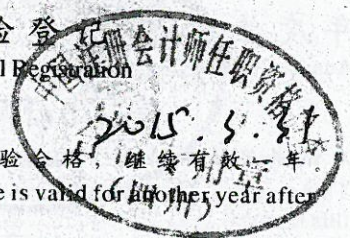 验登记
l Registration
中国注册会计师任职资格
2015.3.31
验合格，继续有效一年
e is valid for another year after